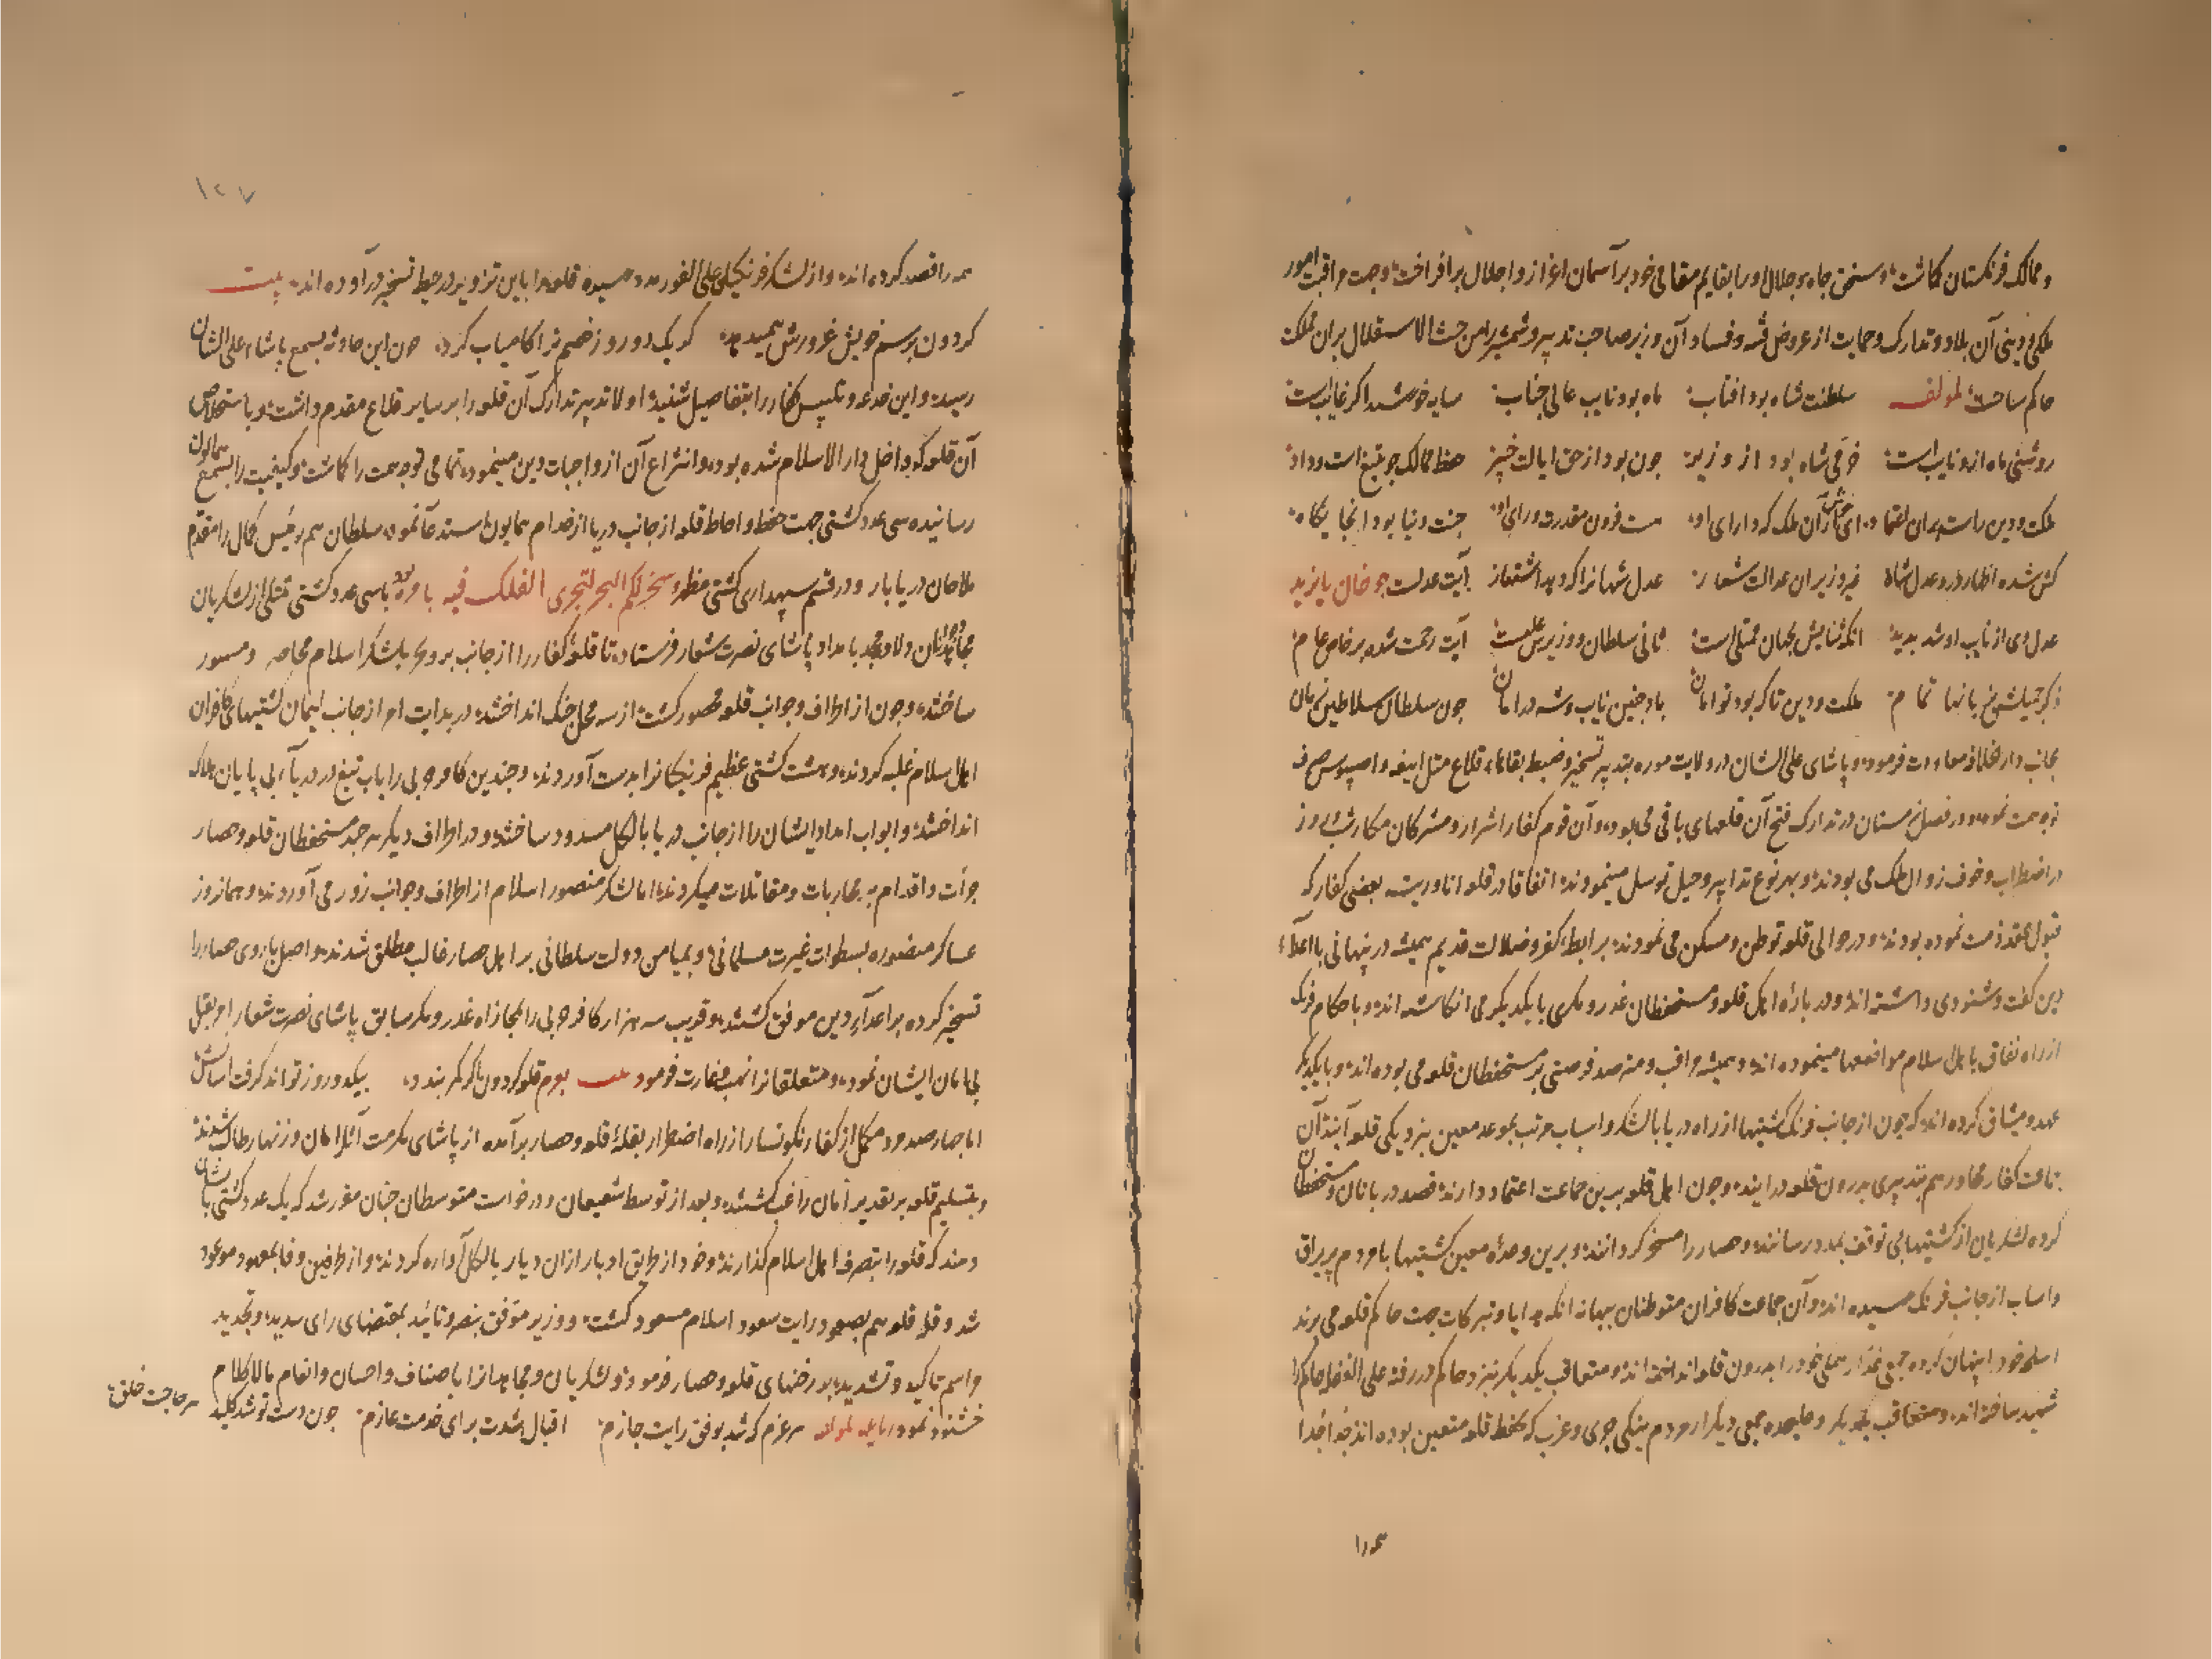 و ممالک فرنکستان کماشت و سخن جاه و جلال اورا بقایم مقامی خود بر آسمان اعزاز و اجلال برافراخت و جهت مراقبت امور
ملکی و دینی آن بلاد و تدارک و حمایت از عروض فتنه و فساد آن وزیر صاحب تدبیر و شمشیر را من حیث الاستقلال بران مملکت
حاکم ساخت لمولفه سلطنت شاه بود افتاب ماه بود نایب عالی جناب سایه خورشید اکر غایبست
روشنی ماه ازو نایب است خرمی شاه بود از وزیر چون بود از حق ایالت خیز حفظ ممالک چو بتیغ است و داد
ملک و دین راست بران اعتماد ای خوش آن ملک که دارای او هست فزون مقدرت و رای او جنت دنیا بود انجایکاه
کش شده اظهار درو عدل شاه غیر وزیران عدالت شعار عدل شهانرا که دید اشتهار آیت عدلت چو خان یا نزید
عدل وی از نایب او شد بدید انکه ثنایش بجهان ممتلی است ثانی سلطان و وزیرش علیست آیت رحمت شده بر خاص و عام
ذکر جمیلش بزبانها تمام ملکت و دین تا که بود توامان باد چنین نایب و شه در امان چون سلطان سلاطین زمان
بجانب دار الخلافه معاودت فرمود و پاشای علی الشان در ولایت موره بتدبیر تسخیر و ضبط بقاع و قلاع مثل اینه و اصپوس صرف
توجه نموده و در فصل زمستان در تدارک فتح آن قلعهای باقی می بود و آن قوم کفار اشرار و مشرکان مکار شب و روز
در اضطراب و خوف زوال ملک می بودند و بهر نوع تدابیر و حیل توسل مینمودند اتفاقا در قلعه اناورینه بعضی کفار که
قبول عقد ذمت نموده بودند و در حوالی قلعه توطن و مسکن می نمودند برابطه کفر و ضلالت قدیم همیشه در پنهانی با اعداء
دین کفت و شنودی داشته اند و در باره اهل قلعه و مستحفظان غدر و مکری با یکدیکر می انکاشته اند و با حکام فرنک
از راه نفاق با اهل اسلام مواضعها مینموده اند و همیشه مراقب و مترصد فرصتی بر مستحفظان قلعه می بوده اند و با یکدیکر
عهد و میثاق کرده اند که چون از جانب فرنک کشتیها از راه دریا با لشکر و اسباب مرتب بموعد معین بنزدیکی قلعه آیند آن
جماعت کفار مجاور هم بتدبیری بدرون قلعه درایند و چون اهل قلعه برین جماعت اعتماد دارند قصد دربانان و مستحفظان
کرده لشکریان از کشتیها بی توقف بمدد رسانند و حصار را مسخر کردانند و برین وعده معین کشتیها با مردم پر یراق
و اسباب از جانب فرنک رسیده اند و آن جماعت کافران متوطنان ببهانه انکه هدایا و تبرکات جهت حاکم قلعه می برند
اسلحه خود را پنهان کرده جمعی بدرون قلعه انداخته اند و متعاقب یکدیکر بنزد حاکم در رفته علی الغفله حاکم را
شهید ساخته اند و متعاقب یکدیکر و علیحده جمعی دیکر از مردم ینکی چری و عزب که بحفظ قلعه متعین بوده اند جدا جدا
همه را
۱۲۷
همه را قصد کرده اند و از لشکر فرنک خیلی علی الفور مدد رسیده قلعه را باین تزویر در حیطه تسخیر درآورده اند بیت
کردون برسم خویش غرورش همیدهد کر یک دو روز خصم ترا کامیاب کرد چون این حادثه بسمع پاشاء علی الشان
رسید و این خدعه و تلبیس کفار را بتفاصیل شنید اولا تدبیر تدارک آن قلعه را بر سایر قلاع مقدم داشت و باستخلاص
آن قلعه که داخل دار الاسلام شده بود و انتزاع آن از واجبات دین مینمود تمامی توجه همت را کماشت و کیفیت را بسمع همایون
رسانیده سی عدد کشتی جهت حفظ و احاطه قلعه از جانب دریا از خدام همایون استدعا نمود سلطان هم رئیس کمال را مقدم
ملاحان دریابار و در قسم سپهداری کشتی مظهر و سخر لکم البحر لتجری الفلک فیه بامره بود با سی عدد کشتی ممتلی از لشکریان
مجاهدان دلاور و مجد بامداد پاشای نصرت شعار فرستاد تا قلعه کفار را از جانب بر و بحر بلشکر اسلام محاصره و محصور
ساختند و چون از اطراف و جوانب قلعه محصور کشت از سه محل جنک انداختند در بدایت امر از جانب لیمان کشتیهای کافران
اهل اسلام غلبه کردند و هشت کشتی عظیم فرنکیانرا بدست آوردند و چندین کافر حربی را باب تیغ در دریای بی پایان هلاک
انداختند و ابواب امداد ایشان را از جانب دریا بالکل مسدود ساختند و در اطراف دیکر هر چند مستحفظان قلعه و حصار
جرأت و اقدام بمحاربات و مقاتلات میکردند اما لشکر منصور اسلام از اطراف و جوانب زور می آوردند و همانروز
عساکر منصوره بسطوات غیرت مسلمانی و بمیامن دولت سلطانی بر اهل حصار غالب مطلق شدند و اصل باروی حصار را
تسخیر کرده بر اعداء دین موفق کشتند و قریب سه هزار کافر حربی را بمجازاه غدر و مکر سابق پاشای نصرت شعار امر بقتل
بی امان ایشان نمود و متعلقانرا نهب و غارت فرمود بیت بعزم قلعه کردون اکر کمر بندد بیکدو روز تواند کرفت اسانش
اما چهارصد مرد مکمل از کفار نکونسار از راه اضطرار بقله قلعه و حصار برآمده از پاشای مکرمت آثار امان و زنهار طالب شدند
و بتسلیم قلعه بر تقدیر امان راغب کشتند و بعد از توسط شفیعان و درخواست متوسطان چنان مقرر شد که یک عدد کشتی بایشان
دهند که قلعه را بتصرف اهل اسلام کذارند و خود از طریق ادبار ازان دیار بالکل آواره کردند و از طرفین وفا بعهود موعود
شد و قله قلعه هم بصعود رایت سعود اسلام مسعود کشت و وزیر موفق بنصر و تائید بمقتضای رای سدید و تجدید
مراسم تاکید و تشدید بر رخنهای قلعه و حصار فرمود و لشکریان و مجاهدانرا باصناف احسان و انعام مالاکلام
خشنود نمود رباعیه لمولفه هر عزم که شد بوفق رایت جازم اقبال شدت برای خدمت عازم چون دست تو شد کلید هر حاجت خلق